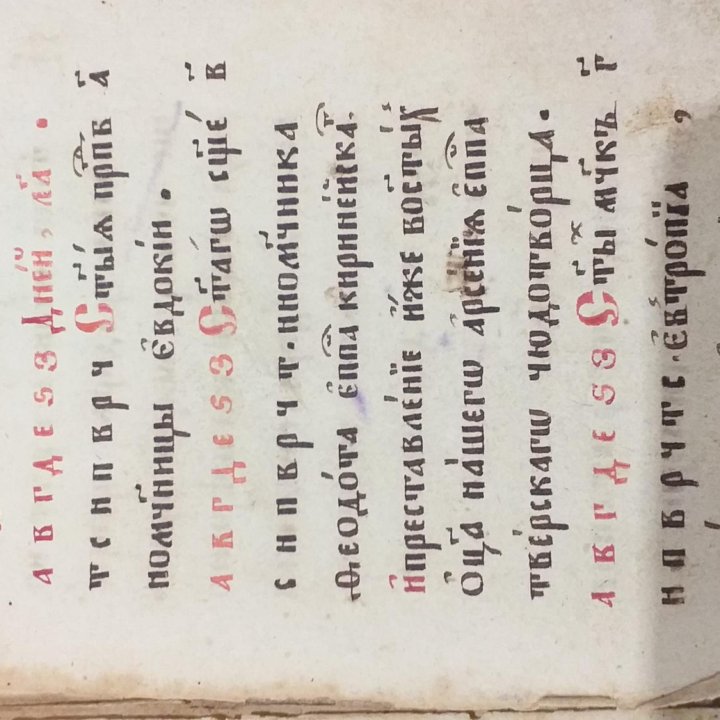 а в г д е ѕ з Дні́й, ла҃ .
т с н п в р ч Ст҃ы́ѧ прп҃в а҃
номч҃ницы є҆вдокі́и .
а в г д е ѕ з Ст҃а́гѡ сщ҃е́ в҃
с н п в р ч т . нномч҃ника
Ѳеодо́та є҆пп҃а кирине́йска .
И҆преставле́нїе и҆́же во́ст҃ы́х
Оц҃а̀ на́шегѡ а҆рсе́нїѧ є҆пп҃а
тве́рскагѡ чюдотво́рца .
а в г д е ѕ з Ст҃ы́х мч҃къ г҃
н п в р ч т с . є҆ѵтро́пїа ,